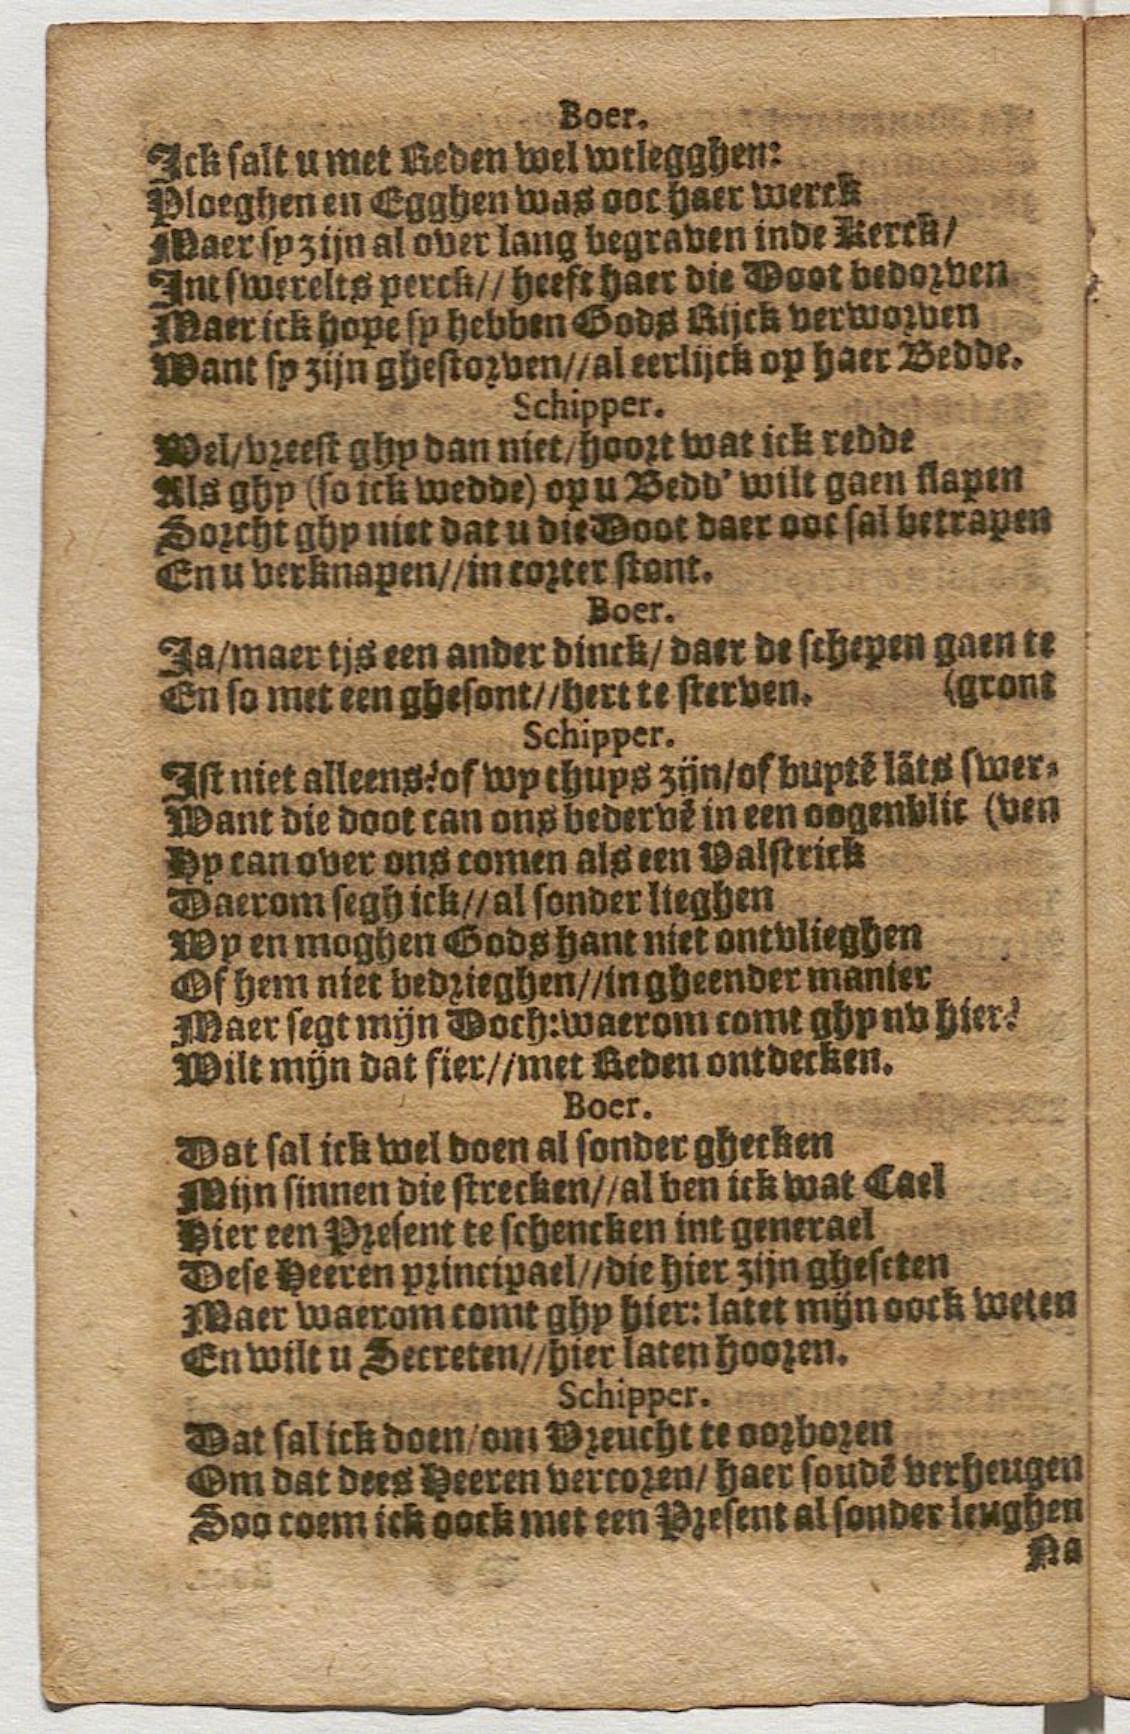 Boer.
Ick salt u met Reden wel wtlegghen:
Ploeghen en Egghen was ooc haer werck
Maer sy zijn al over lang begraven inde Kerck/
Int swerelts perck// heeft haer die Doot bedorven
Maer ick hope sy hebben Gods Rijck verworven
Want sy zijn ghestorven//al eerlijck op haer Bedde.
Schipper.
Wel/vreest ghy dan niet/hoort wat ick redde
Als ghy (so ick wedde) op u Bedd' wilt gaen slapen
Sorcht ghy niet dat u die Doot daer ooc sal betrapen
En u verknapen//in corter stont.
Boer.
Ja/maer tjs een ander dinck/ daer de schepen gaen te
En so met een ghesont//hert te sterven. (gront
Schipper.
Ist niet alleens?of wy thuys zijn/of buytē lāts swer-
Want die doot can ons bedervē in een oogenblic (ven
Hy can over ons comen als een Valstrick
Daerom segh ick//al sonder lieghen
Wy en moghen Gods hant niet ontvlieghen
Of hem niet bedrieghen//in gheender manier
Maer segt mijn Doch:waerom comt ghy nv hier?
Wilt mijn dat fier//met Reden ontdecken.
Boer.
Dat sal ick wel doen al sonder ghecken
Mijn sinnen die strecken//al ben ick wat Cael
Hier een Present te schencken int generael
Dese Heeren principael//die hier zijn gheseten
Maer waerom comt ghy hier: latet mijn oock weten
En wilt u Secreten//hier laten hooren.
Schipper.
Dat sal ick doen/om Vreucht te oorboren
Om dat dees Heeren vercoren/ haer soudē verheugen
Soo coem ick oock met een Present al sonder leughen
Na